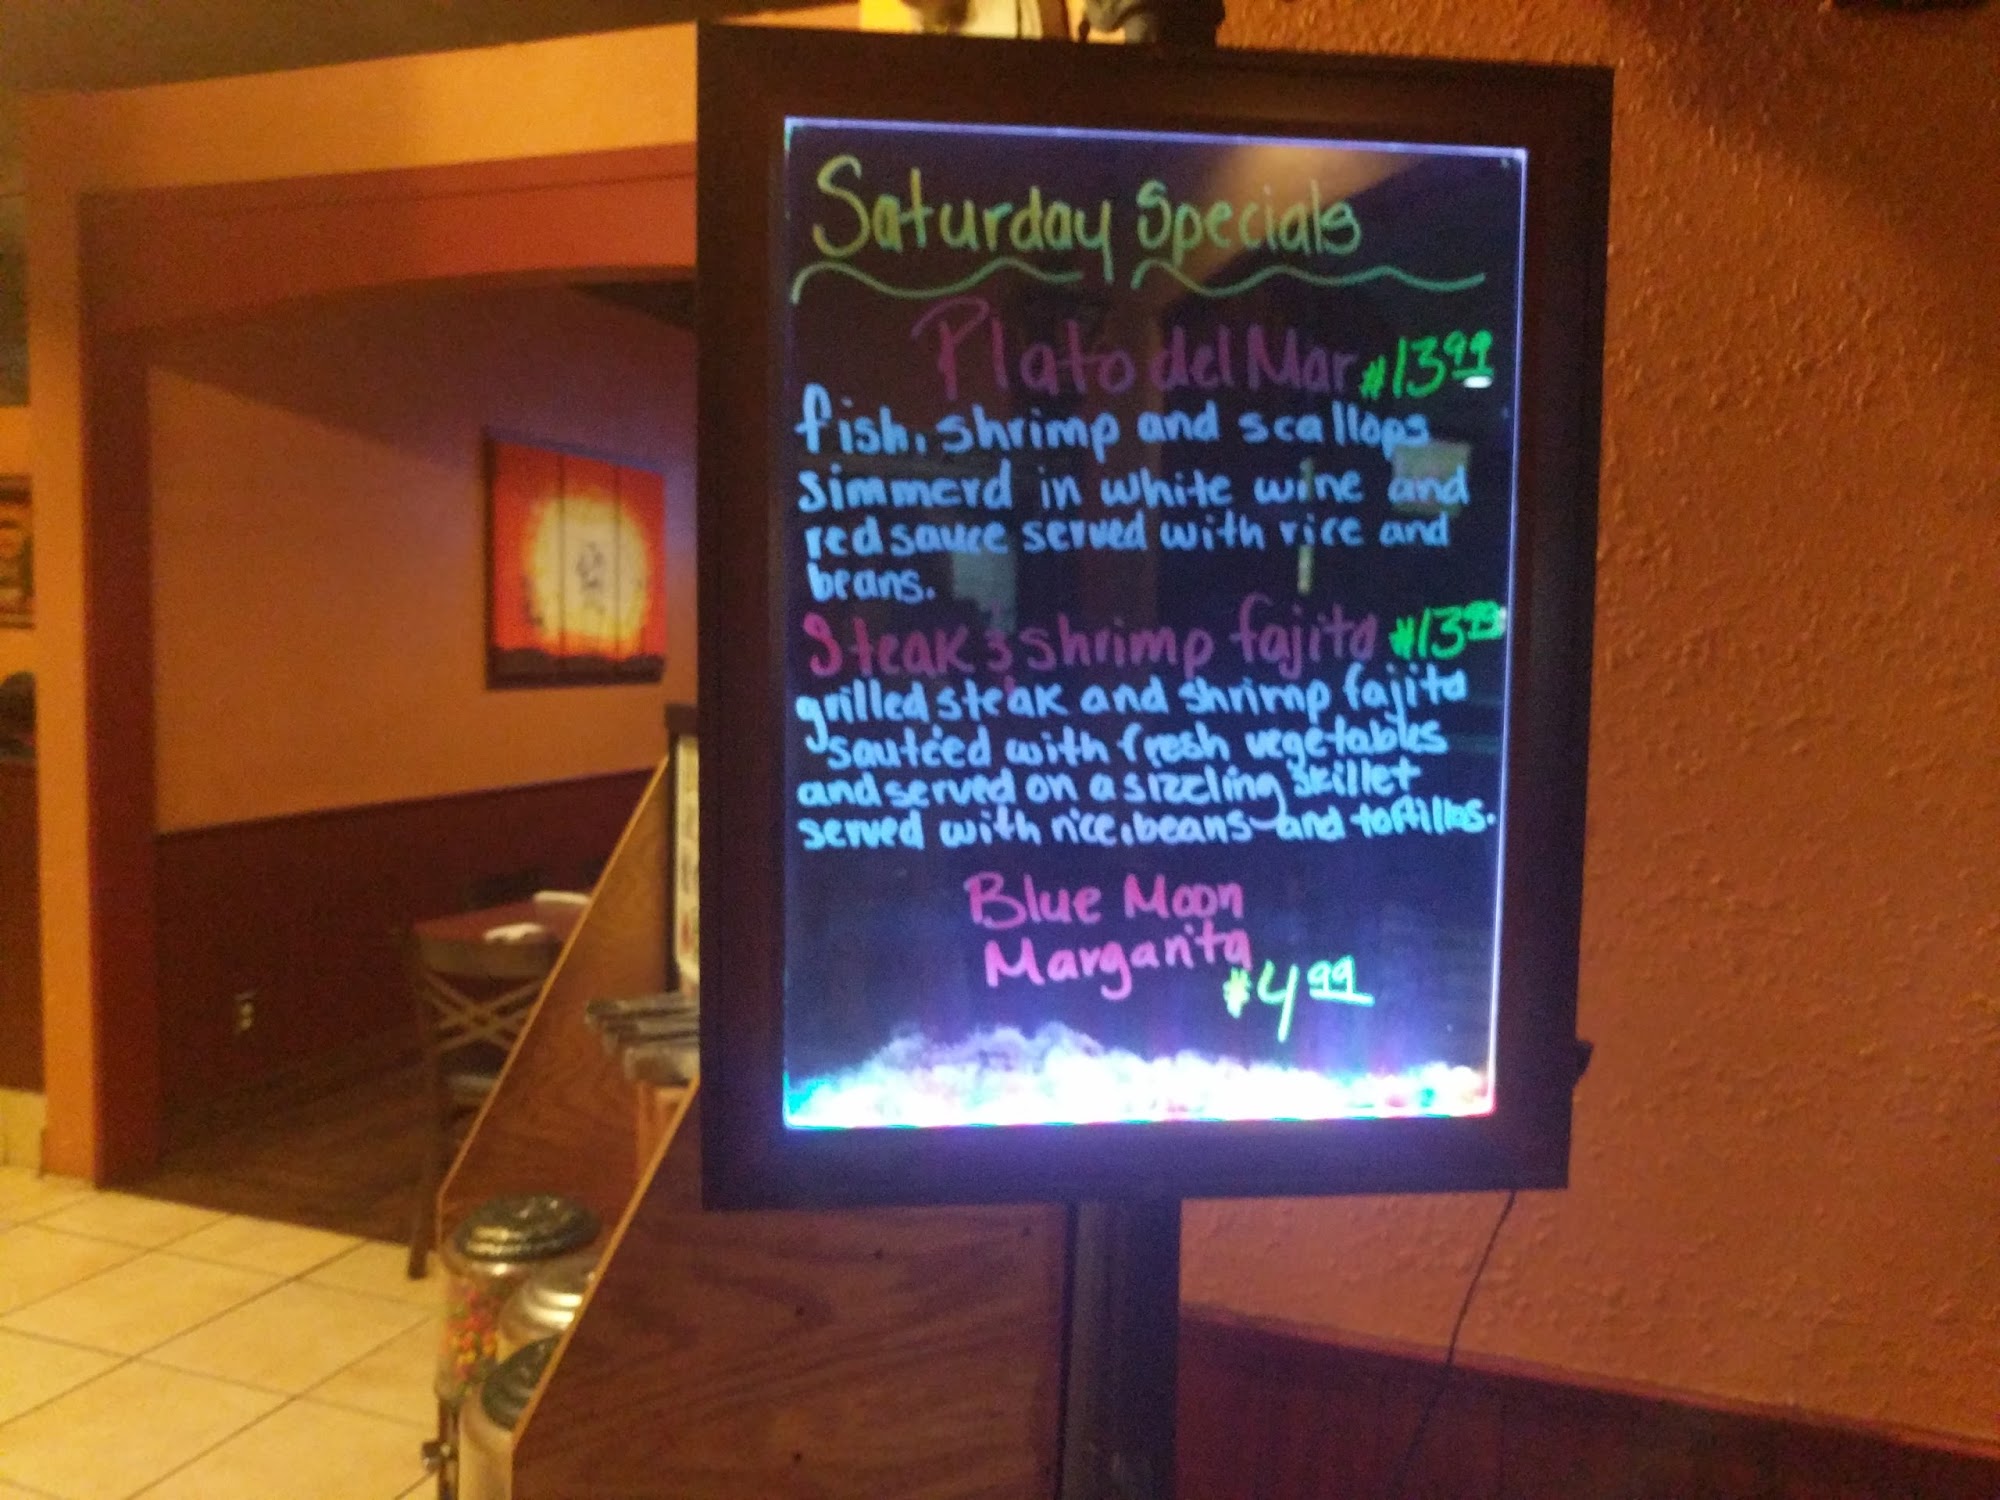 Saturday Specials
Plato del Mar $13.99
fish, shrimp and scallops
simmerd in white wine and
red sauce served with rice and
beans.
Steak & shrimp fajita $13.99
grilled steak and shrimp fajita
sauteed with fresh vegetables
and served on a sizzling skillet
served with rice, beans and tortillas.
Blue Moon
Margarita
$4.99